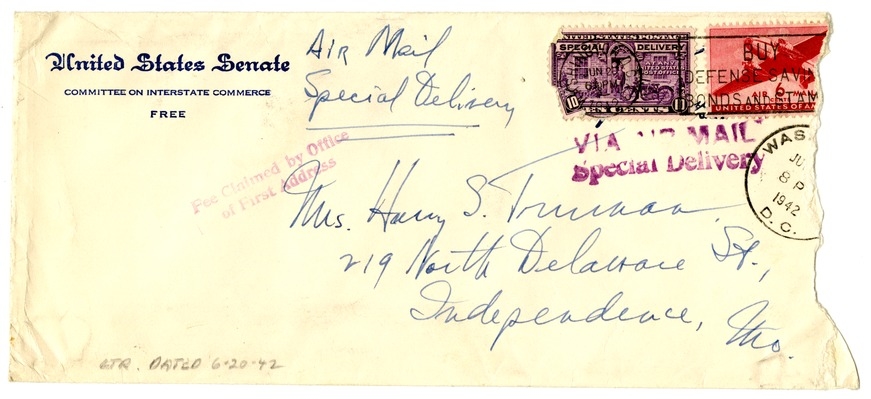 United States Senate
COMMITTEE ON INTERSTATE COMMERCE
FREE
Air Mail
Special Delivery
UNITED STATES POSTAGE
SPECIAL DELIVERY
UNITED STATES
POST OFFICE
10 10
TEN CENTS
BUY
DEFENSE SAVIN
BONDS AND STAM
6
UNITED STATES OF AM
VIA AIR MAIL
Special Delivery
Fee Claimed by Office
of First Address
WAS
JU
8 P
1942
D. C.
Mrs. Harry S. Truman
219 North Delaware St.,
Independence, Mo.
LTR. DATED 6-20-42